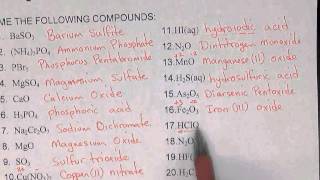 ME THE FOLLOWING COMPOUNDS:
BaSO₃ Barium Sulfite
2. (NH₄)₃PO₄ Ammonium Phosphate
3. PBr₅ Phosphorus Pentabromide
4. MgSO₄ Magnesium Sulfate
5. CaO Calcium Oxide
6. H₃PO₄ phosphoric acid
7. Na₂Cr₂O₇ Sodium Dichromate
8. MgO Magnesium Oxide
9. SO₃ Sulfur trioxide
10. Cu(NO₃)₂ Copper (II) nitrate
11. HI(aq) hydroiodic acid
12. N₂O Dinitrogen Monoxide
+2 -2
13. MnO manganese (II) oxide
14. H₂S(aq) hydrosulfuric acid
15. As₂O₅ Diarsenic Pentoxide
+3 -2
16. Fe₂O₃ Iron (III) oxide
17. HClO
18. N₂O
19. HF(
20. H₂C